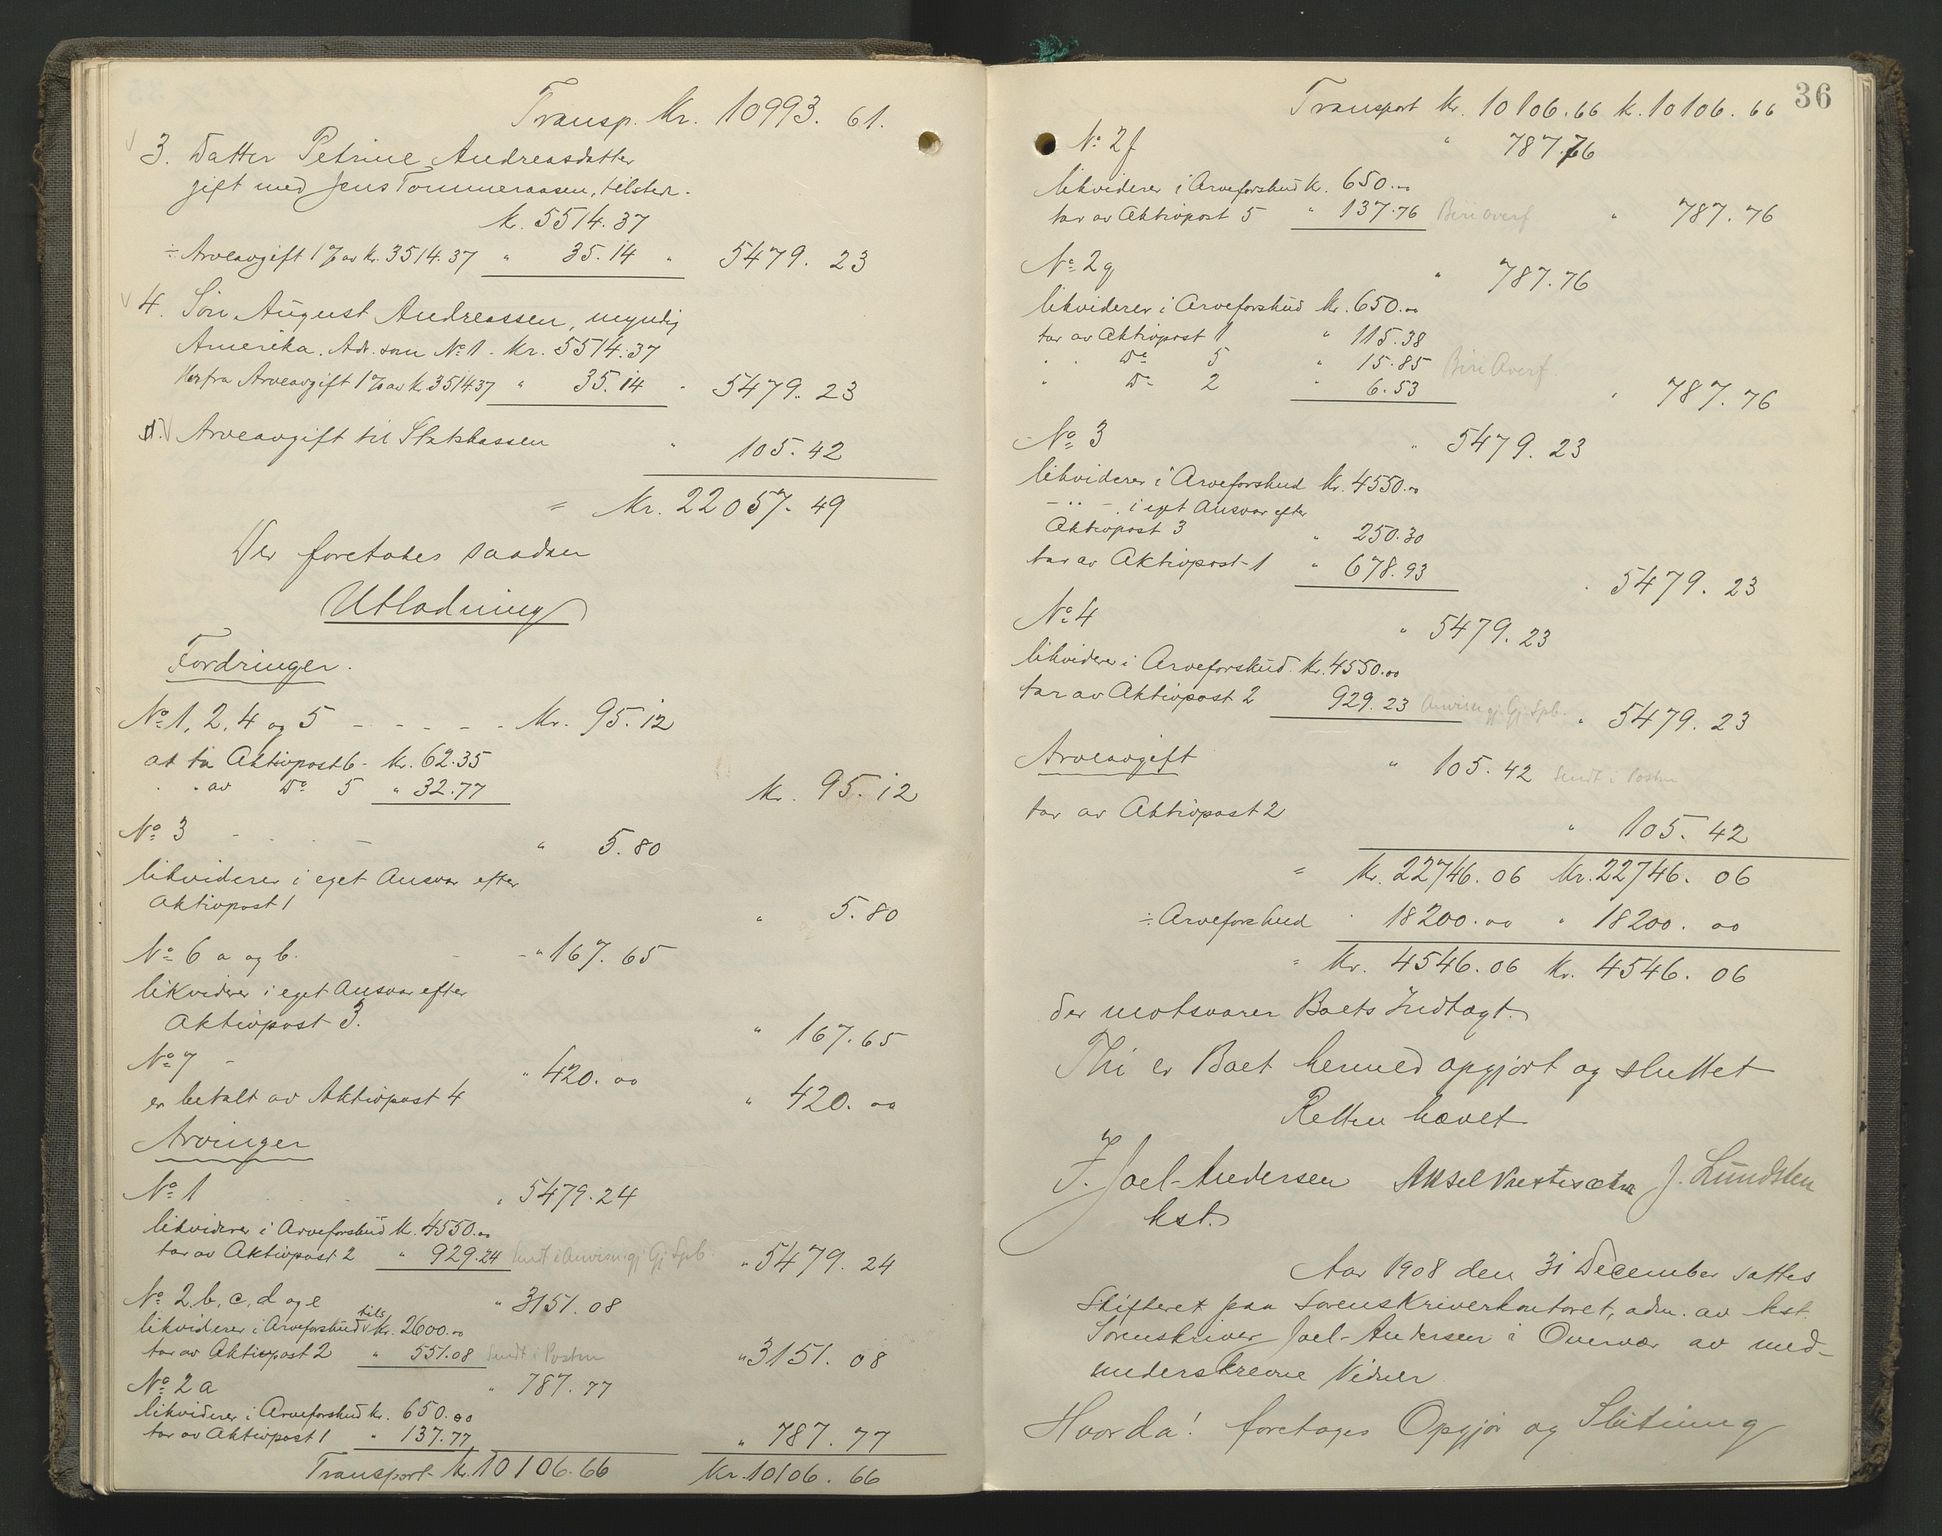 Transp. Kr. 10993. 61.
3. Datter Petrine Andreasdatter
gift med Jens Tommeraasen, tilsted.
k. 5514.37
÷ Arveavgift 1% av Kr. 3514.37 " 35.14 " 5479. 23
4. Søn August Andreassen, myndig
Amerika. Adr. som No 1. Kr. 5514.37
Herfra Arveavgift 1% av k. 3514.37 " 35.14 " 5479. 23
5. Arveavgift til Statskassen " 105. 42
= Kr. 22057. 49
Der foretokes saadan
Utlodning
Fordringer.
No 1, 2, 4 og 5 - - - - Kr. 95.12
at ta Aktivpost 6 - Kr. 62.35
" " av Do 5 " 32.77 Kr. 95.12
No 3 " 5.80
likviderer i eget Ansvar efter
Aktivpost 1 " 5.80
No 6 a og b. - " 167.65
likviderer i eget Ansvar efter
Aktivpost 3. " 167.65
No 7 - " 420.00
er betalt av Aktivpost 4 " 420.00
Arvinger
No 1 " 5479.24
likviderer i Arveforskud k. 4550.00
tar av Aktivpost 2 " 929.24 Sendt i Anvisn gj Gj. Spb. " 5479. 24
No 2 b, c, d og e " 3151.08
likviderer i Arveforskud tils. Kr. 2600.00
tar av Aktivpost 2 " 551.08 Sendt i Posten " 3151. 08
No 2 a " 787.77
likviderer i Arveforskud kr. 650.00
tar av Aktivpost 1 " 137.77 " 787. 77
Transport Kr. 10106.66 Kr. 10106. 66
36
Transport Kr. 10106.66 k. 10106. 66
No 2 f " 787.76
likviderer i Arveforskud k. 650.00
tar av Aktivpost 5 " 137.76 Biri Overf " 787. 76
No 2 g " 787.76
likviderer i Arveforskud Kr. 650.00
tar av Aktivpost 1 " 115.38
" " Do 5 " 15.85 Biri Overf.
" Do 2 " 6.53 " 787. 76
No 3 " 5479. 23
likviderer i Arveforskud Kr. 4550.00
- " - i eget Ansvar efter
Aktivpost 3 " 250.30
tar av Aktivpost 1 " 678.93 " 5479. 23
No 4 " 5479. 23
likviderer i Arveforskud. Kr. 4550.00
tar av Aktivpost 2 929. 23 Anvisn gj. Gj. Spb. " 5479. 23
Arveavgift " 105. 42 Sendt i Posten
tar av Aktivpost 2 " 105. 42
= Kr. 22746.06 Kr. 22746. 06
÷ Arveforskud " 18200.00 " 18200. 00
= Kr. 4546.06 Kr. 4546. 06
der motsvarer Boets Indtægt.
Thi er Boet hermed opgjort og sluttet
Retten hævet
F. Joel-Andersen Aksel J. Lundsten
kst.
Aar 1908 den 31 December sattes
Skifteret paa Sorenskriverkontoret, adm. av kst.
Sorenskriver Joel-Andersen i Overvær av med-
underskrevne Vidner.
Hvorda! foretoges Opgjør og Slutning